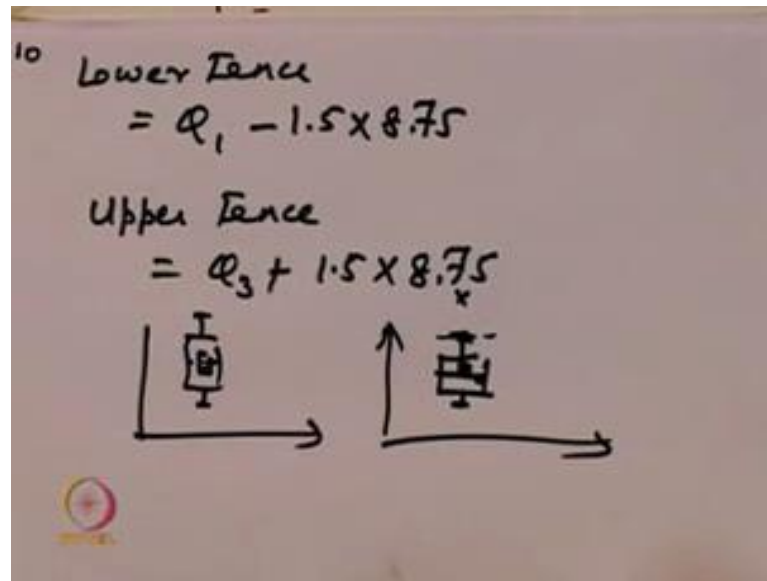 10
Lower Fence
= Q₁ - 1.5 x 8.75
Upper Fence
= Q₃ + 1.5 x 8.75
x